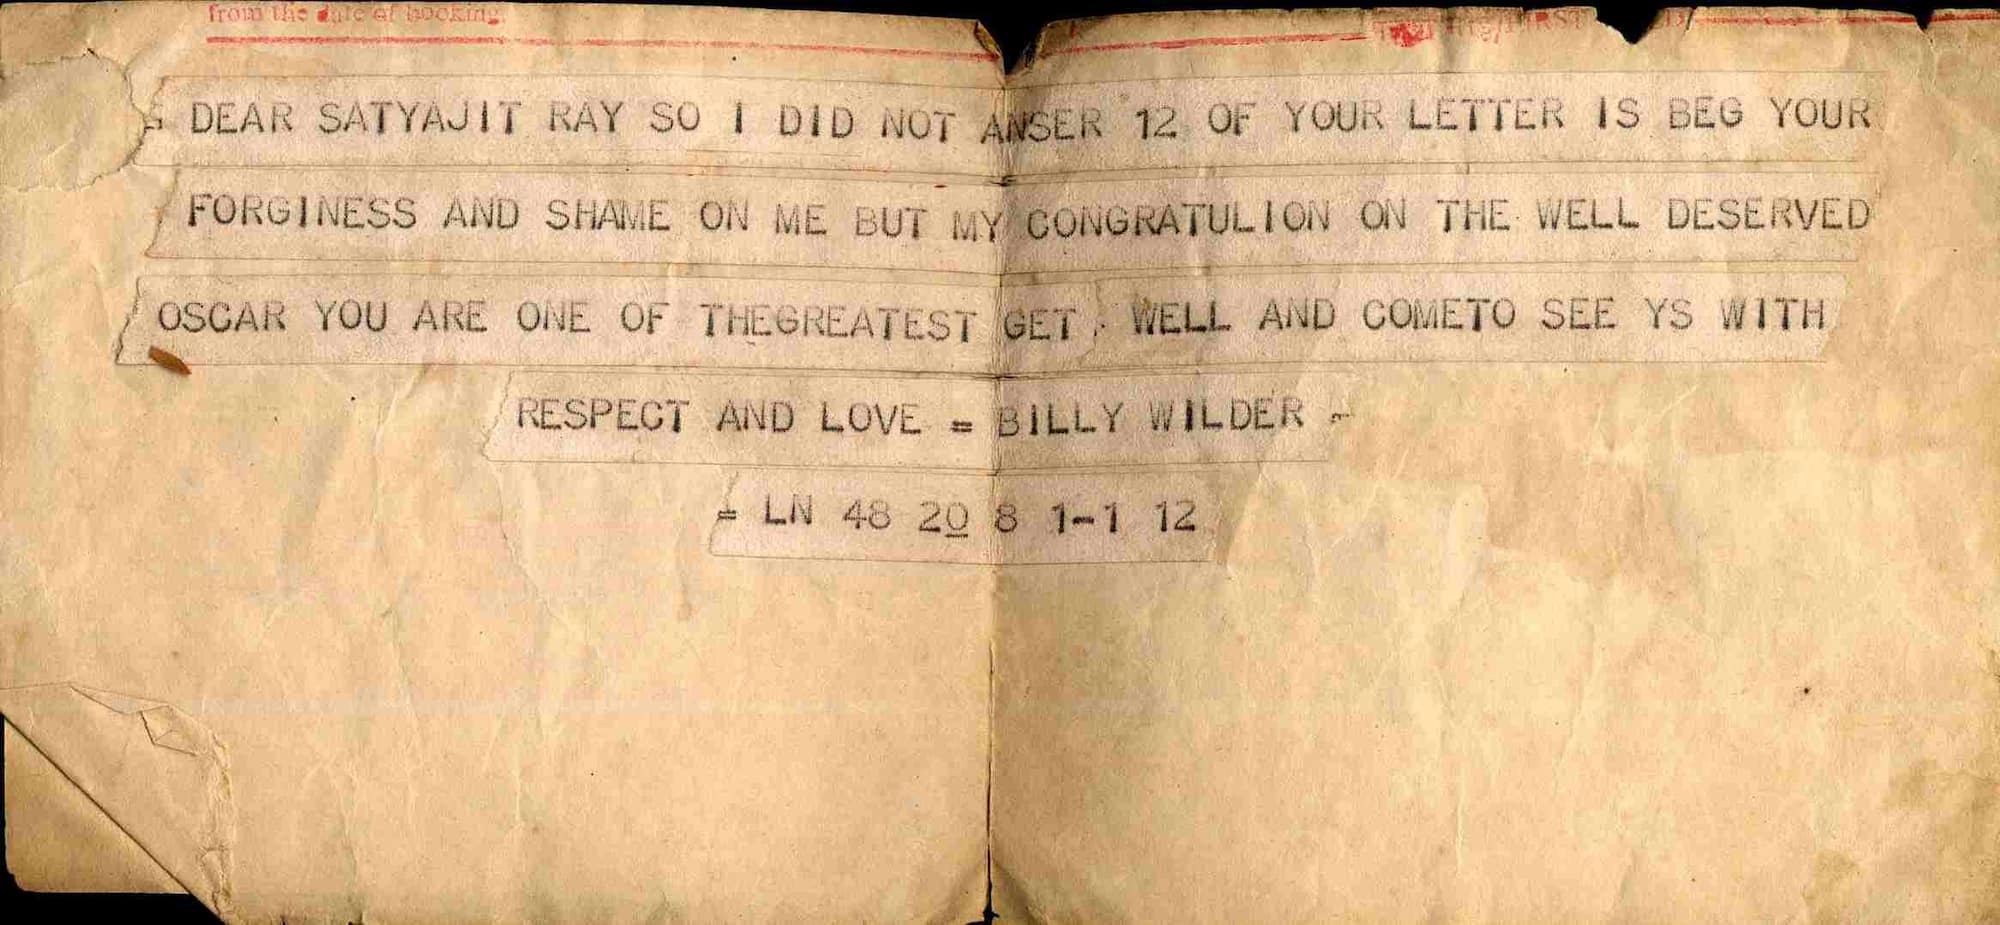 from the date of booking.
DEAR SATYAJIT RAY SO I DID NOT ANSER 12 OF YOUR LETTER IS BEG YOUR
FORGINESS AND SHAME ON ME BUT MY CONGRATULION ON THE WELL DESERVED
OSCAR YOU ARE ONE OF THEGREATEST GET . WELL AND COMETO SEE YS WITH
RESPECT AND LOVE = BILLY WILDER
= LN 48 20 8 1-1 12